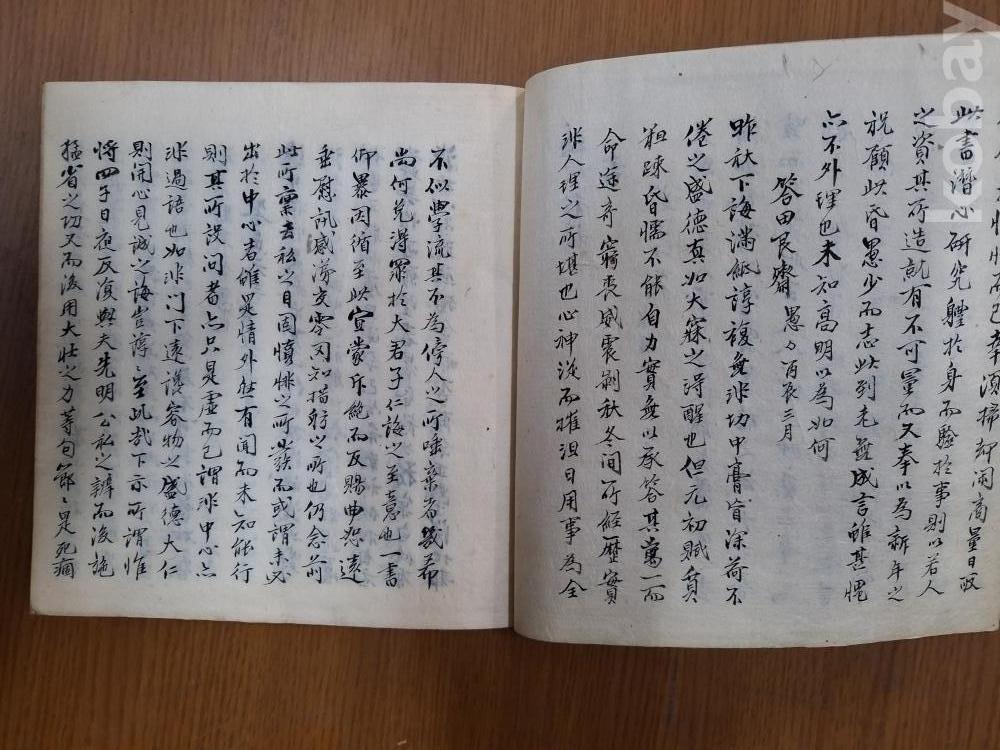 此書潛心研究體於身而驗於事則以若人
之資其所造就有不可量而又奉以為新年之
祝願此昏愚少而志此到老無成言雖甚愧
亦不外理也未知高明以為如何
答田艮齋 愚〻丙辰三月
昨秋下誨滿紙諄複無非切中膏肓深荷不
倦之盛德真如大寐之得醒也但元初賦質
粗踈昏懦不能自力實無以承答其萬一而
命途奇窮喪威震剝秋冬間所經歷實
非人理之所堪也心神從而摧沮日用事為全
不似學流其不為傍人之所唾棄者幾希
尚何免得罪於大君子仁誨之至意也一書
仰暴因循至此宜蒙斥絶而反賜申恕遠
垂慰訊感溯交零罔知指躬之所也仍念前
此所稟去私之目固憤悱之所發而或謂未必
出於中心者雖是情外然有聞而未知能行
則其所設問者亦只是虛而已謂非中心亦
非過語也如非門下遠誨容物之盛德大仁
則開心見誠之誨豈諄〻至此哉下示所謂惟
將四子日夜反復與夫先明公私之辨而後施
猛省之功又而後用大壯之力等句節〻是死痼
kobay